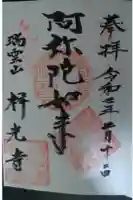 奉拝 令和二年二月十二日
阿弥陀如来
瑞雲山 祥光寺